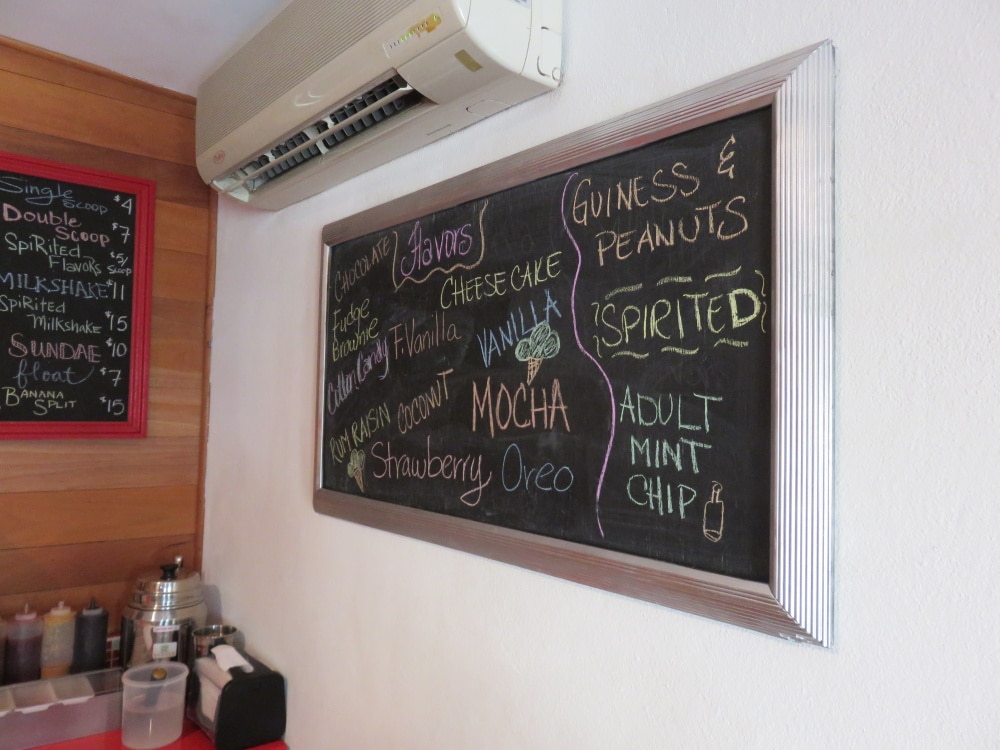 Single
Scoop $4
Double
Scoop $7
Spirited
Flavors $5/
Scoop
MILKSHAKE $11
Spirited
Milkshake $15
SUNDAE $10
float $7
BANANA
SPLIT $15
Flavors
CHOCOLATE
CHEESECAKE
Fudge
Brownie
F. Vanilla
VANILLA
Cotton Candy
COCONUT
MOCHA
RUM RAISIN
Strawberry
Oreo
GUINESS &
PEANUTS
SPIRITED
ADULT
MINT
CHIP